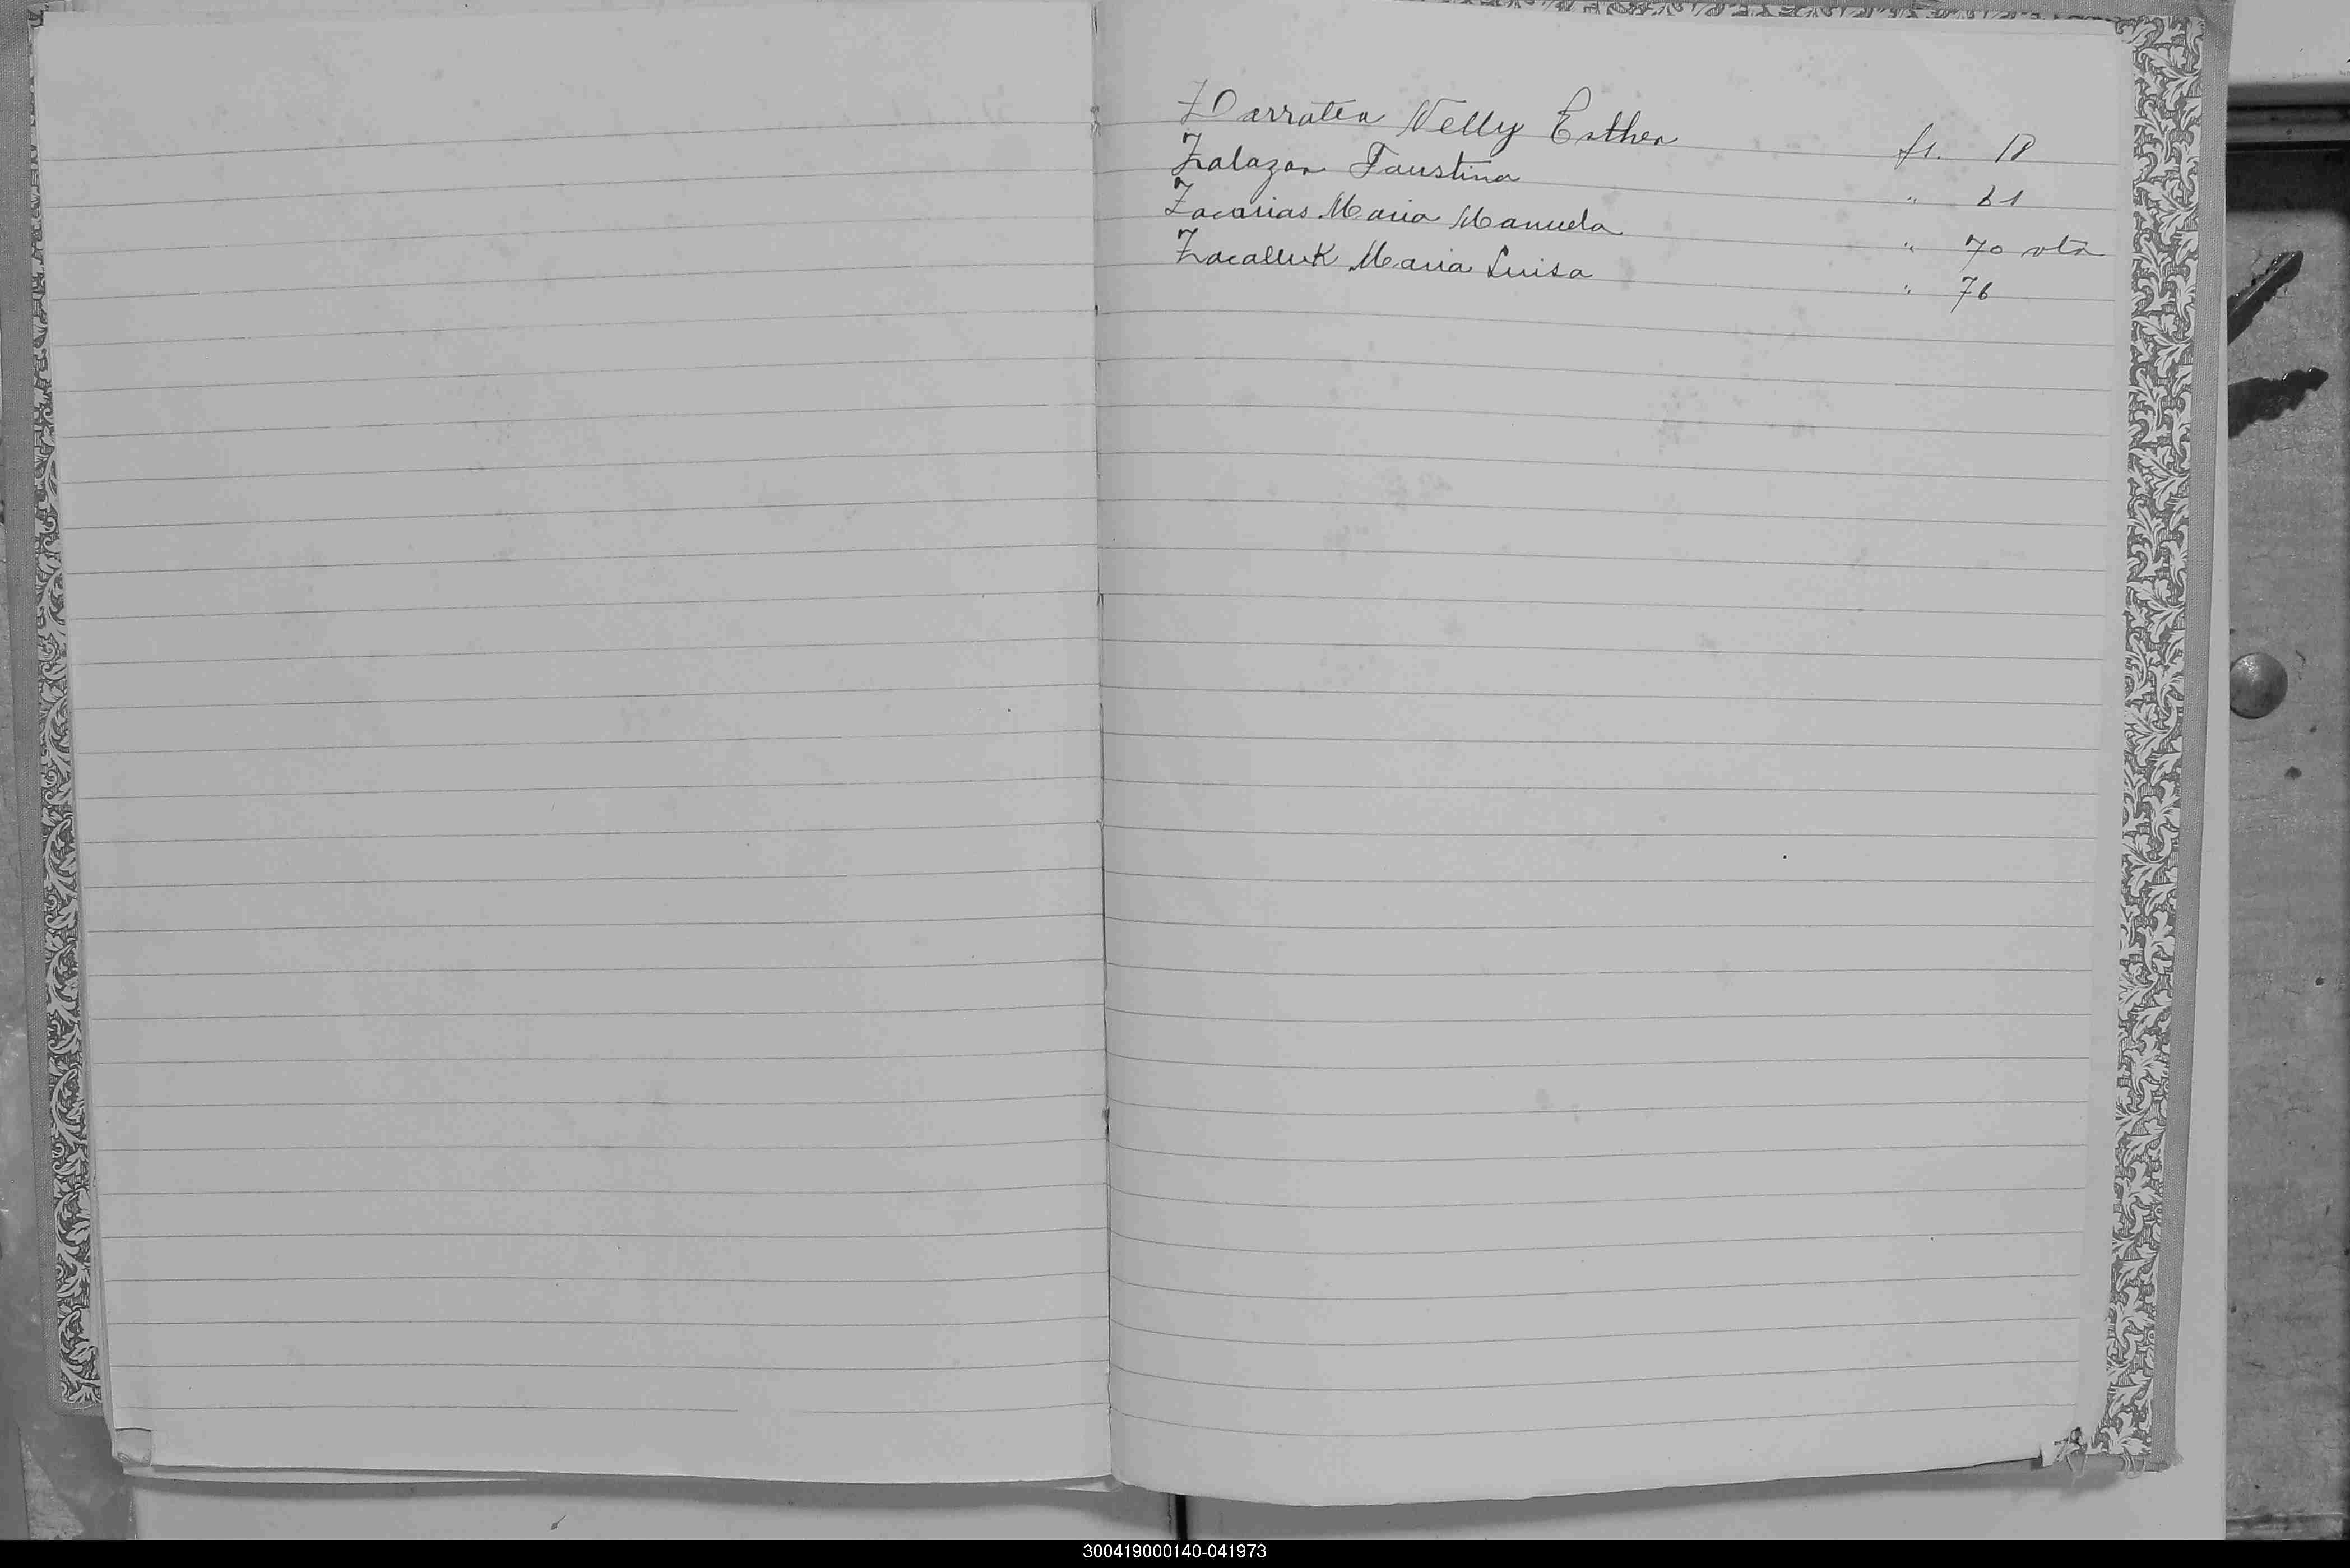 Zarratea Nelly Esther fs. 18
Zalazar Faustina " 61
Zacarias Maria Manuela " 70 vta
Maria Luisa " 76
300419000140-041973